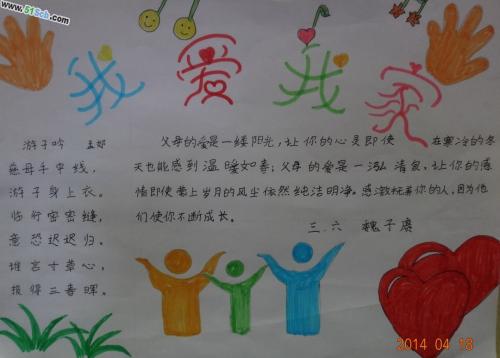 www.51Sch.com
我爱我家
游子吟 孟郊
慈母手中线,
游子身上衣。
临行密密缝,
意恐迟迟归。
谁言寸草心,
报得三春晖。
父母的爱是一缕阳光,让你的心灵即使 在寒冷的冬
天也能感到温暖如春;父母的爱是一泓清泉,让你的感
情即使蒙上岁月的风尘依然纯洁明净。感激抚养你的人,因为他
们使你不断成长。
三.六 魏子
2014 04 18